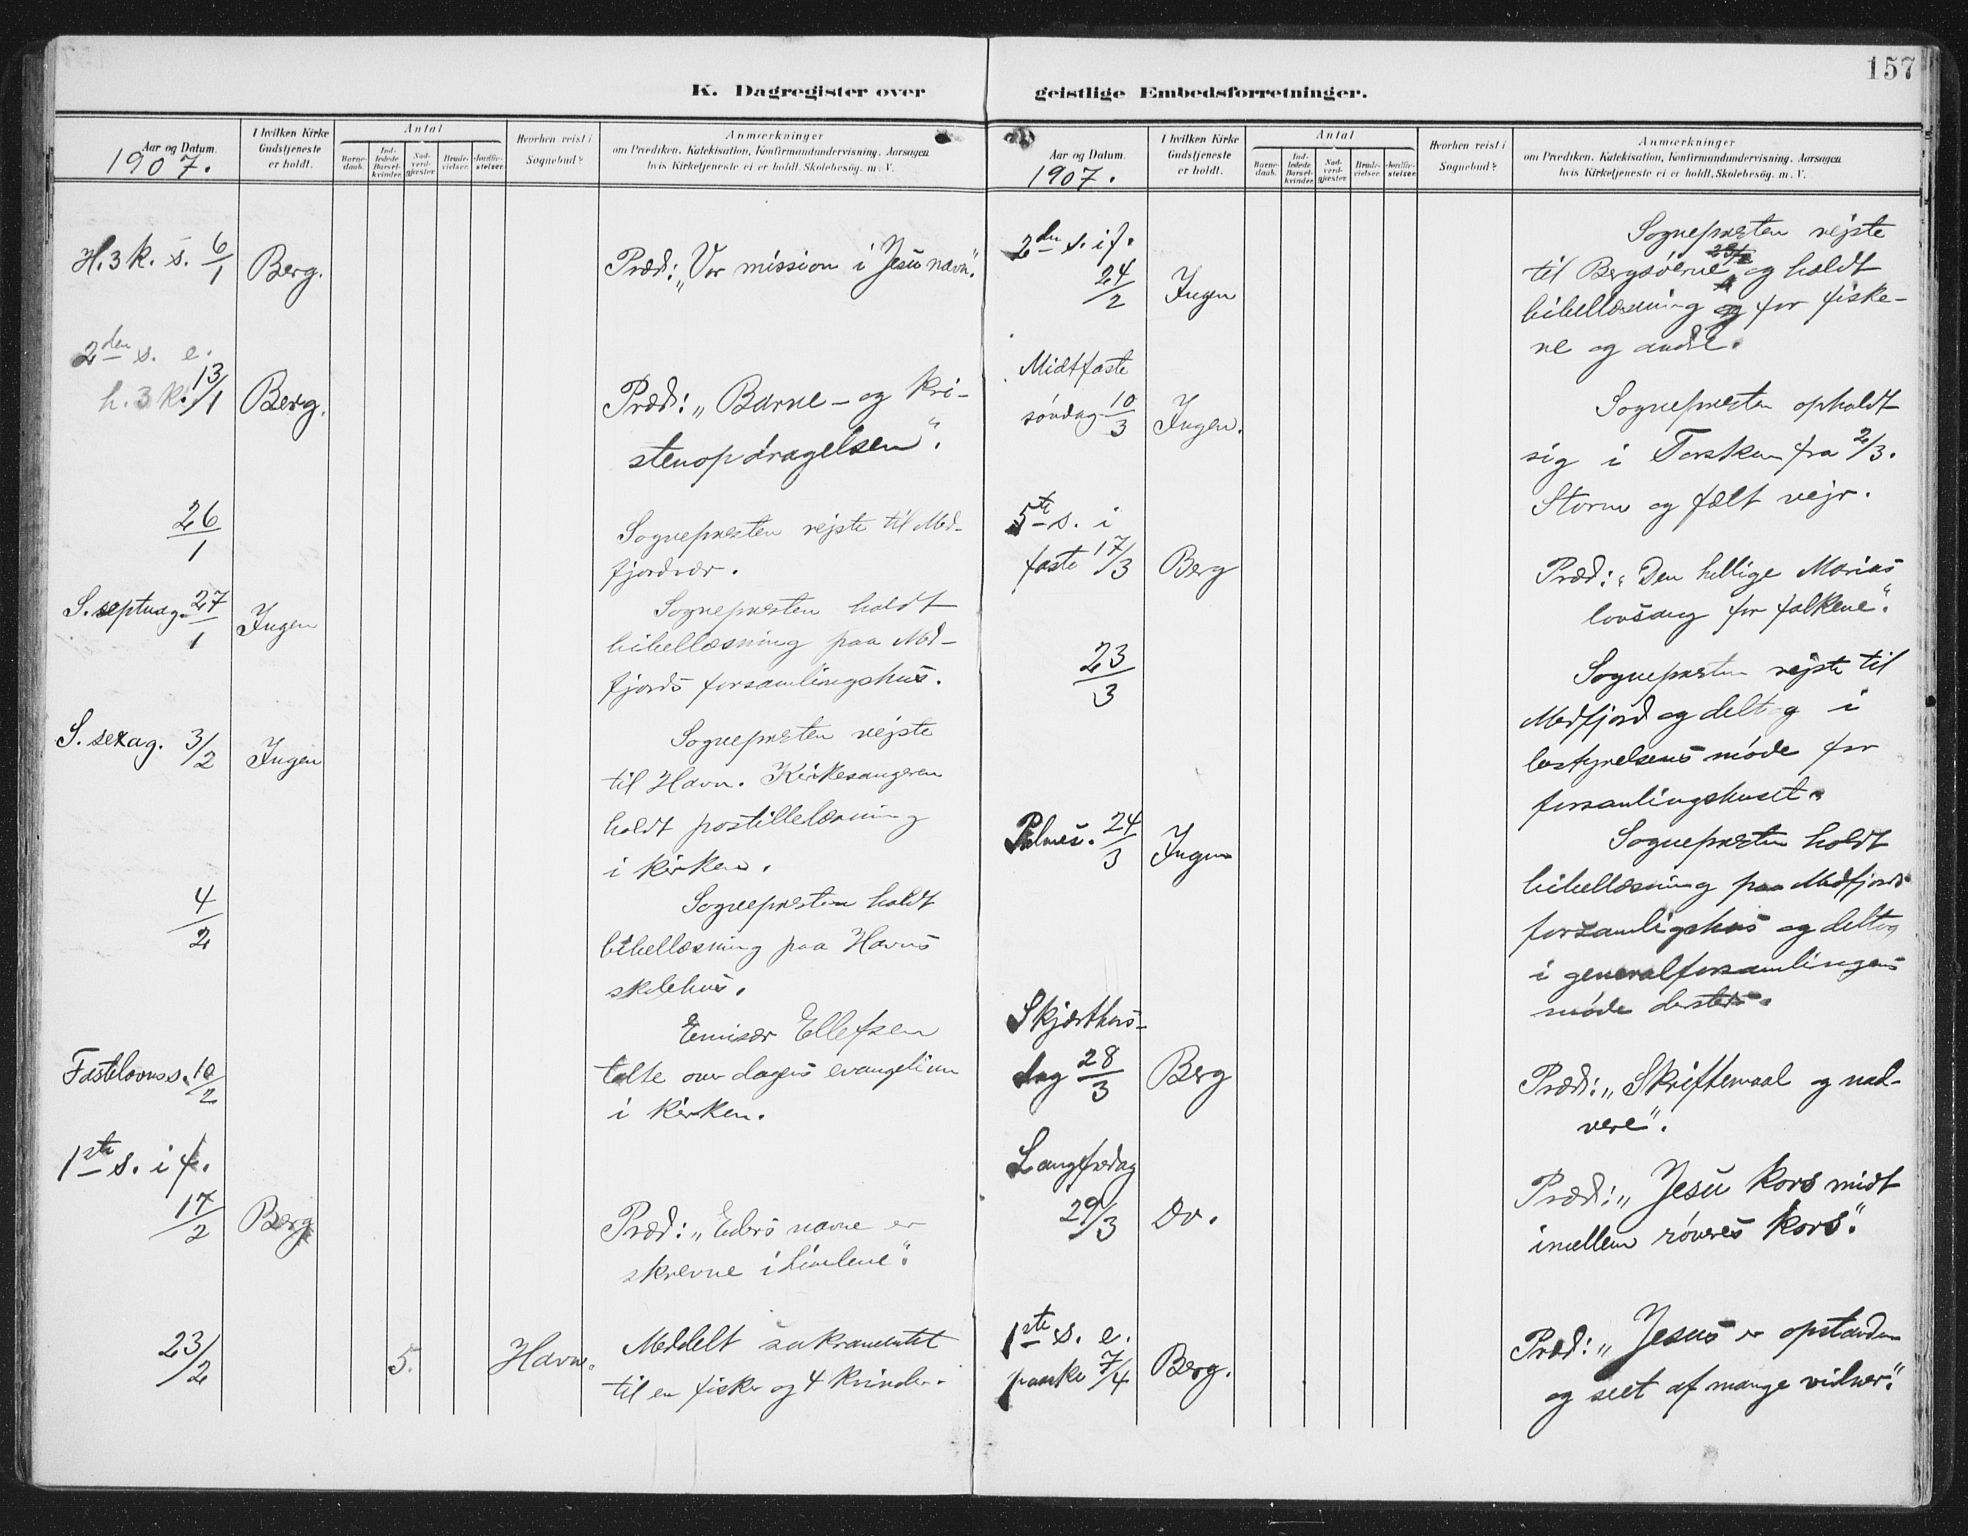 157
K. Dagregister over
geistlige Embedsforretninger.
Aar og Datum.
1907.
I hvilken Kirke
Gudstjeneste
er holdt.
Antal
Barne-
daab.
Ind-
ledede
Barsel-
kvinder.
Nad-
verd-
gjæster.
Brude-
vielser.
Jordfæ-
stelser.
Hvorhen reist i
Sognebud?
Anmærkninger
om Prædiken, Katekisation, Konfirmandundervisning, Aarsagen
hvis Kirketjeneste ei er holdt, Skolebesøg, m. V.
H. 3 k. s. 6/1
Berg.
Præd: "Vor mission i Jesu navn".
2den s. e.
h. 3 k. 13/1
Berg.
Præd: "Barne- og kri-
stenopdragelsen".
26/1
Sognepresten rejste til Med-
fjordvær.
S. septuag. 27/1
Ingen
Sognepresten holdt
bibellæsning paa Med-
fjords forsamlingshus.
S. sexag. 3/2
Ingen
Sognepresten rejste
til Havn. Kirkesangeren
holdt postillelæsning
i kirken.
4/2
Sognepresten holdt
bibellæsning paa Havns
skolehus.
Fastelavnss. 10/2
Emisær Ellefsen
talte over dagens evangelium
i kirken.
1ste s. i f.
17/2
Berg
Præd: "Eders navne er
skrevne i himlene".
23/2
5.
Havn.
Meddelt sakramentet
til en fisker og 4 kvinder.
Aar og Datum.
1907.
I hvilken Kirke
Gudstjeneste
er holdt.
Antal
Barne-
daab.
Ind-
ledede
Barsel-
kvinder.
Nad-
verd-
gjæster.
Brude-
vielser.
Jordfæ-
stelser.
Hvorhen reist i
Sognebud?
Anmærkninger
om Prædiken, Katekisation, Konfirmandundervisning, Aarsagen
hvis Kirketjeneste ei er holdt, Skolebesøg, m. V.
2den s. i f.
24/2
Ingen
Sognepresten rejste
til Bergsøerne og holdt
bibellæsning for fiske-
ne og andre.
Midtfaste
søndag 10/3
Ingen.
Sognepresten opholdt
sig i Torsken fra 2/3.
Storm og fælt vejr.
5te s. i
faste 17/3
Berg
Præd: "Den hellige Marias
lovsang for folkene".
23/3
Sognepresten rejste til
Medfjord og deltog i
bestyrelsens møde for
forsamlingshuset.
Palmes. 24/3
Ingen
Sognepresten holdt
bibellæsning paa Medfjords
forsamligshus og deltog
i generalforsamlingens
møde dersteds.
Skjærthors-
dag 28/3
Berg
Præd: "Skriftemaal og nad-
vere".
Langfredag
29/3
Do.
Præd: "Jesu kors midt
imellem røveres kors".
1ste s. e.
paaske 7/4
Berg.
Præd: "Jesus er opstanden
og seet af mange vidner".